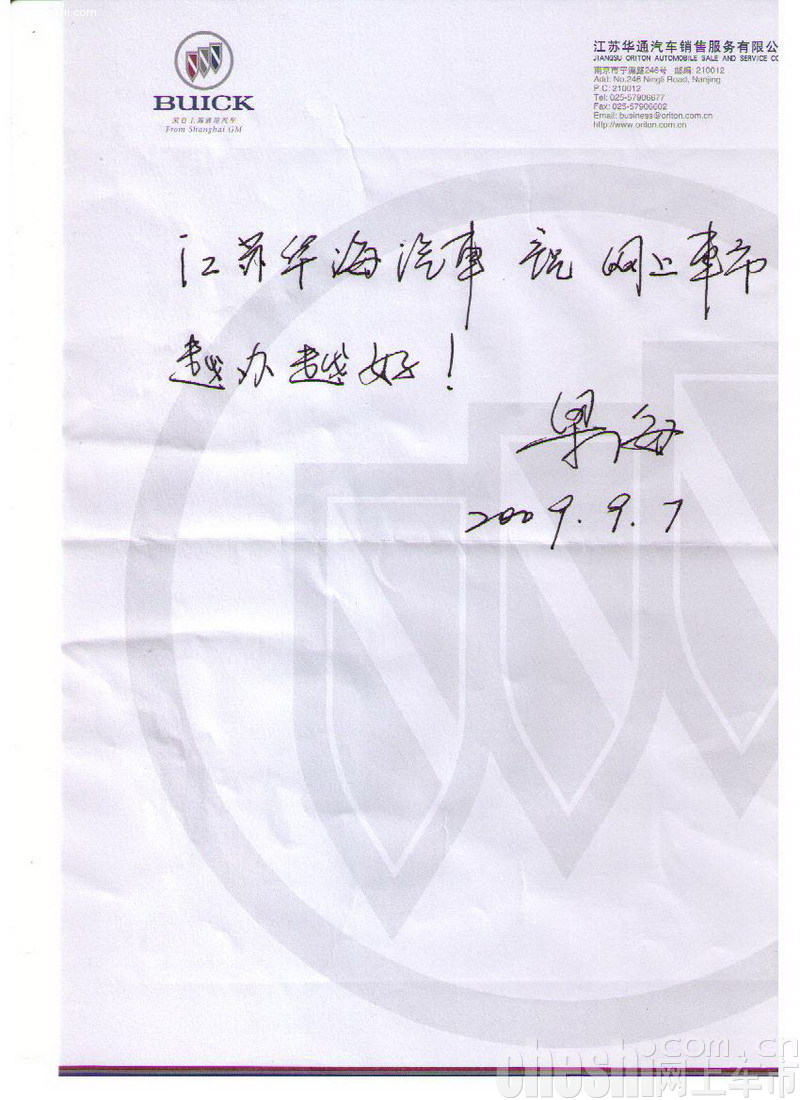 BUICK
来自上海通用汽车
From Shanghai GM
江苏华通汽车销售服务有限公
JIANGSU ORITON AUTOMOBILE SALE AND SERVICE CO
南京市宁溧路246号 邮编: 210012
Add: No.246 Ningli Road, Nanjing
P.C: 210012
Tel: 025-57906677
Fax: 025-57906602
Email: business@oriton.com.cn
http://www.oriton.com.cn
江苏华海汽车 祝 网上车市
越办越好!
2009.9.7
cheshi.com.cn
网上车市